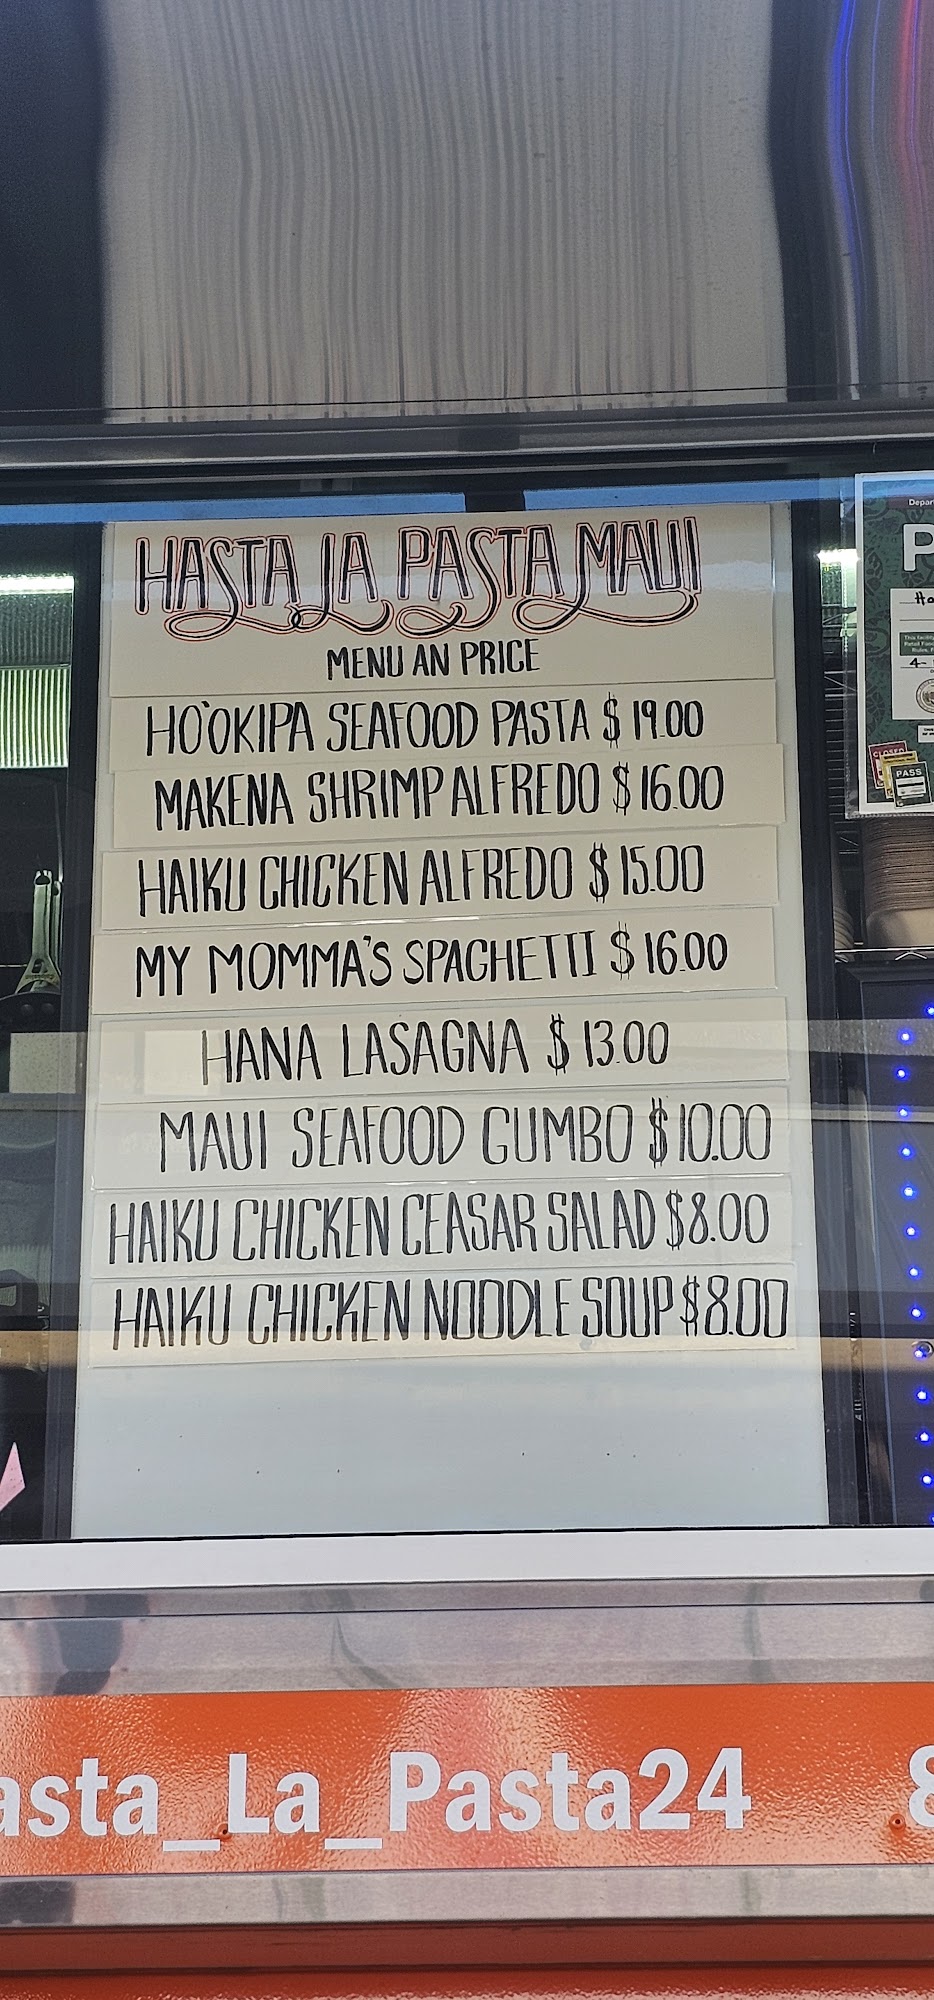 HASTA LA PASTA MAUI
MENU AN PRICE
HO'OKIPA SEAFOOD PASTA $ 19.00
MAKENA SHRIMP ALFREDO $ 16.00
HAIKU CHICKEN ALFREDO $ 15.00
MY MOMMA'S SPAGHETTI $ 16.00
HANA LASAGNA $ 13.00
MAUI SEAFOOD GUMBO $ 10.00
HAIKU CHICKEN CEASAR SALAD $8.00
HAIKU CHICKEN NOODLE SOUP $8.00
CLOSED
PASS
asta_La_Pasta24 8